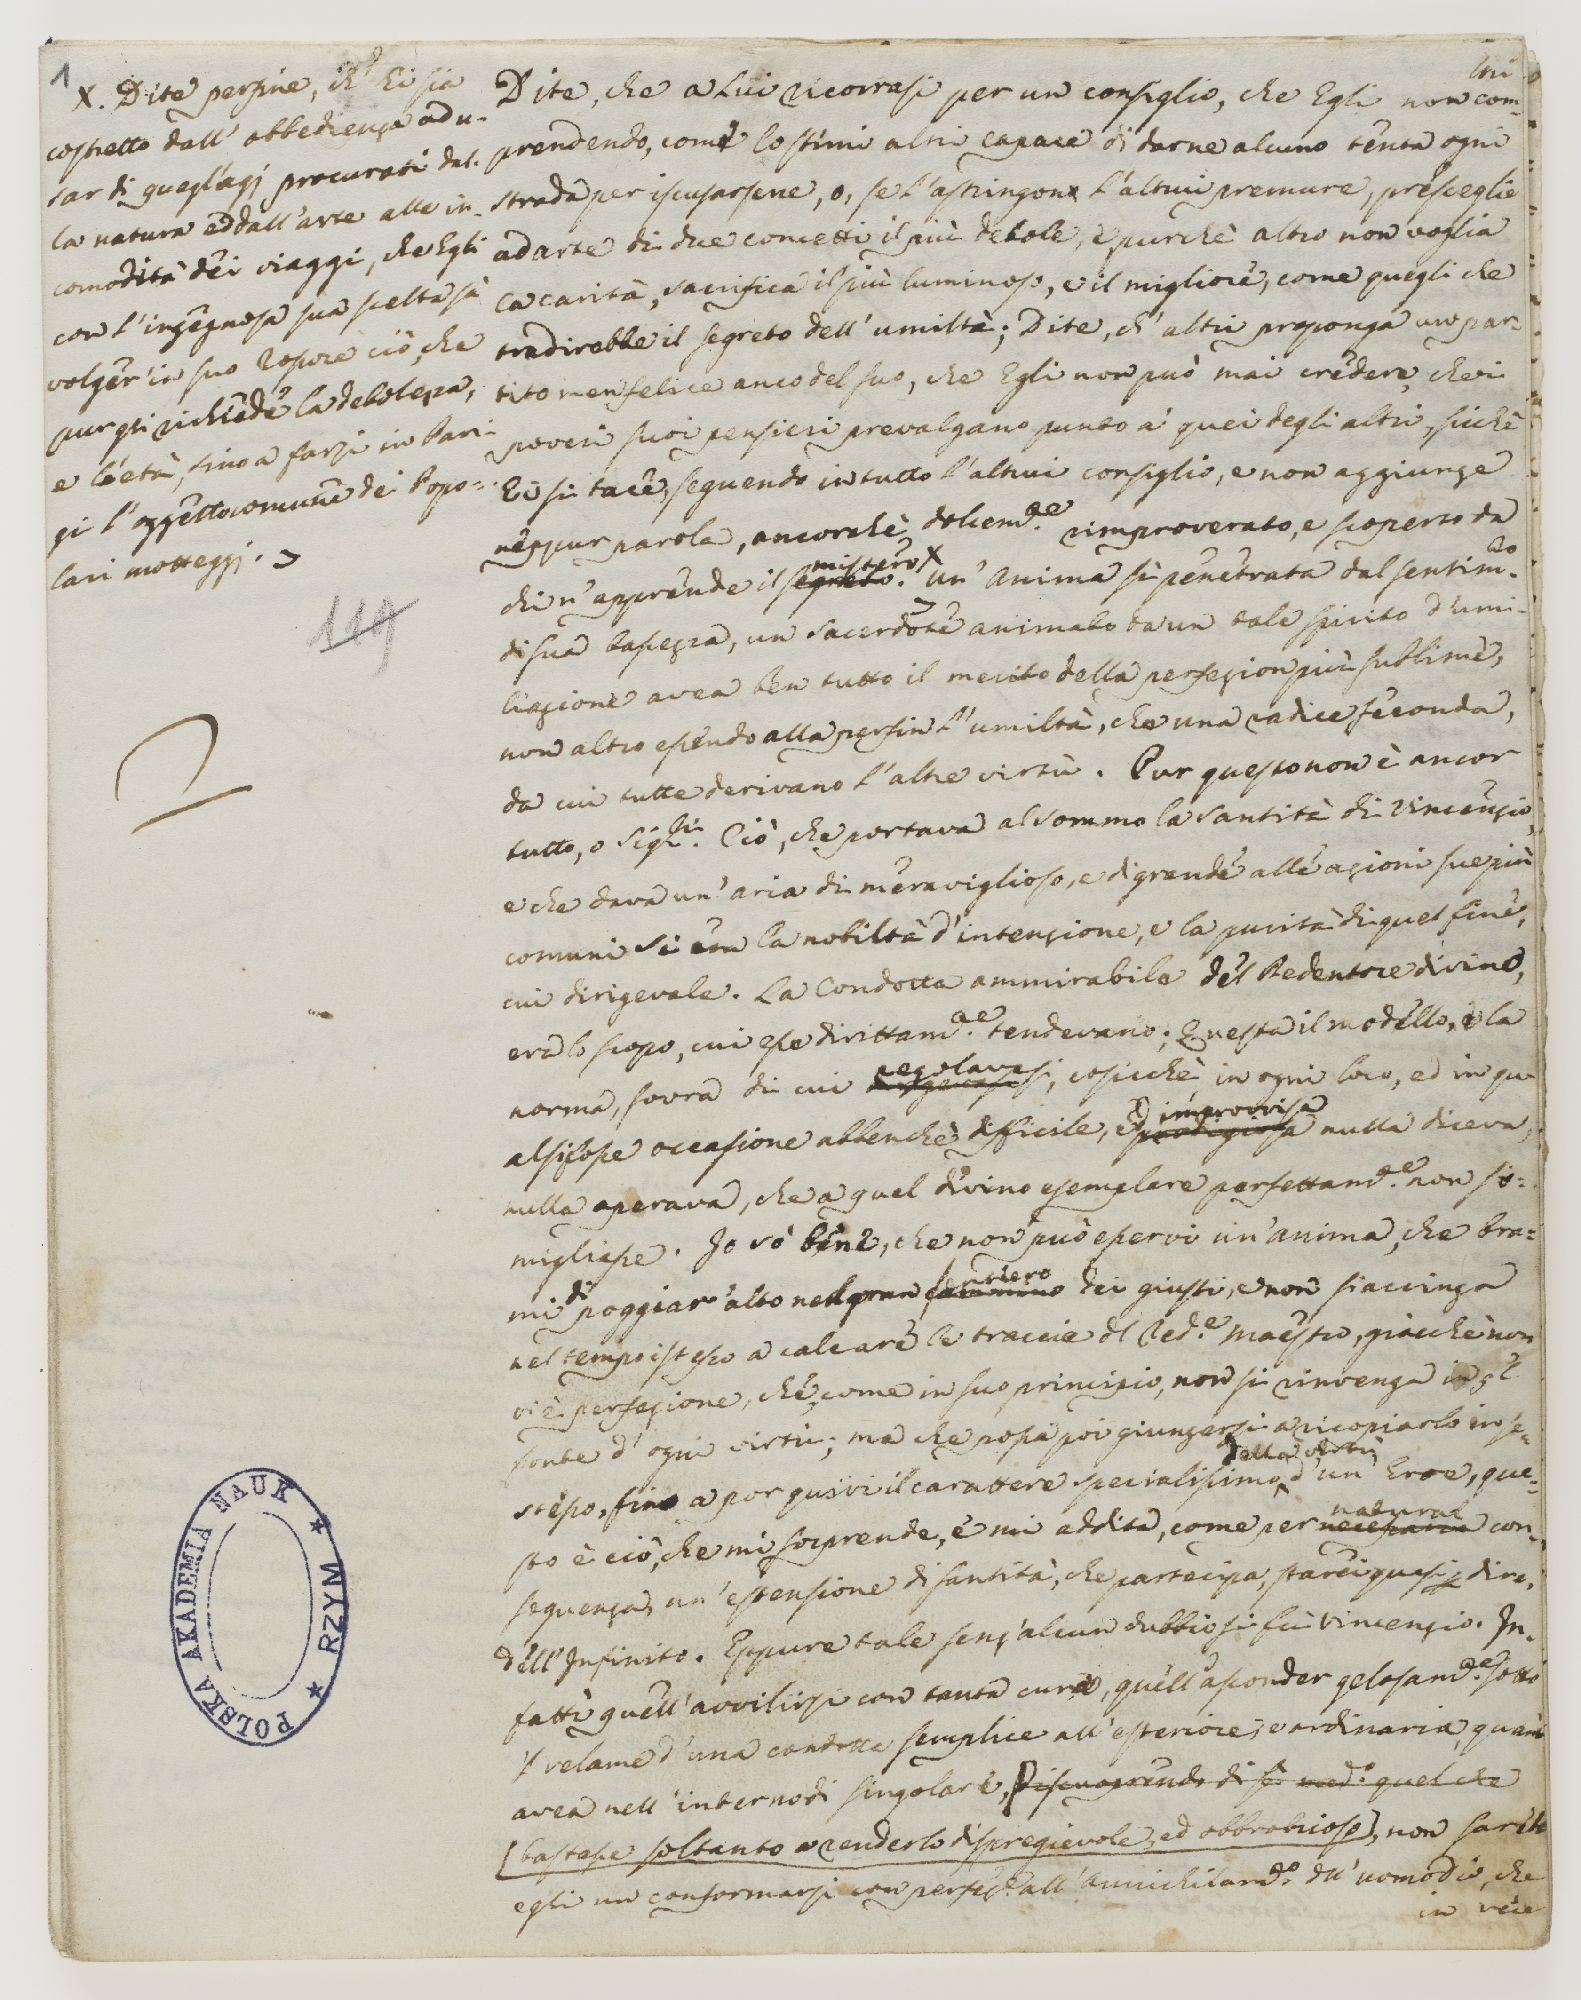 1
X. Dite persine, ch' Ei sia
costretto dall' obbedienza ad u-
sar di quegl'agj procurati dal-
la natura ed dall'arte alle in-
comodità dei viaggi, che Egli
con l'ingegnosa sua scelta fà
volger in suo rossore ciò, che
pur gli richiede la debolezza,
e l'età, fino a farsi in Pari-
gi l'oggetto comune dei Popo-
lari motteggj.
119
Dite, che a Lui ricorrasi per un consiglio, che Egli non com-
prendendo, come lo stimi altri capace di darne alcuno tenta ogni
strada per iscusarsene, o, se l'astringon l'altrui premure, presceglie
ad arte di due concetti il più debole, e purchè altro non voglia
la carità, sacrifica il più luminoso, e il migliore, come quegli che
tradirebbe il segreto dell' umiltà; Dite, ch' altri proponga un par-
tito men felice anco del suo, che Egli non può mai credere, che i
poveri suoi pensieri prevalgano punto a' quei degli altri, sicchè
Ei si tace, seguendo in tutto l'altrui consiglio, e non aggiunge
neppur parola, ancorchè dolcem.te rimproverato, e scoperto da
chi n' apprende il segreto. mistero X Un' Anima sì penetrata dal sentim.to
di sua bassezza, un Sacerdote animato da un tale spirito d'umi-
liazione avea ben tutto il merito della perfezion più sublime,
non altro essendo alla perfin l'umiltà, che una radice feconda,
da cui tutte derivano l'altre virtù. Pur questo non è ancor
tutto, o Sig.ri. Ciò, che portava al sommo la Santità di Vincenzio,
e che dava un' aria di meraviglioso, e di grande alle azioni sue più
comuni si era la nobiltà d'intenzione, e la purità di quel fine,
cui dirigevale. La Condotta ammirabile del Redentore divino,
era lo scopo, cui esse dirittam.te tendevano; Questa il modello, e la
norma, sovra di cui regolavasi, cosicchè in ogni loco, ed in qu-
alsifosse occasione abbenchè difficile, e prodigiosa improvvisa nulla diceva,
nulla operava, che a quel divino esemplare perfettam.te non so-
migliasse. Io sò bene, che non può esservi un'anima, che bra-
mi di poggiar alto nel gran cammino sentiero dei giusti, e non si accinga
nel tempo istesso a calcare le traccie del Red.e Maestro, giacchè non
vi è perfezione, che, come in suo principio, non si rinvenga in ql
fonte d' ogni virtù; ma che possa poi giungersi a ricopiarlo in se-
stesso, fino a por quivi il carattere specialissimo della virtù d'un Eroe, que-
sto è ciò, che mi sorprende, e mi addita, come per necessaria natural con-
seguenza, un' estensione di santità, che partecipa, starei quasi p dire,
dell' Infinito. Eppure tale senz'alcun dubbio si fu Vincenzio. In-
fatti quell'avvilirsi con tanta cura, quell'asconder gelosam.te sotto
'l velame d'una condotta semplice all' esteriore, e ordinaria, quant
avea nell' interno di singolare, discuoprendo di se med.o quel che
[bastasse soltanto a renderlo dispregievole, ed obbrobrioso], non sarà
egli un conformarsi con perfez.e all' Annichilam.to dell' uomo dio, che
in vece
POLSKA AKADEMIA NAUK ★ RZYM ★